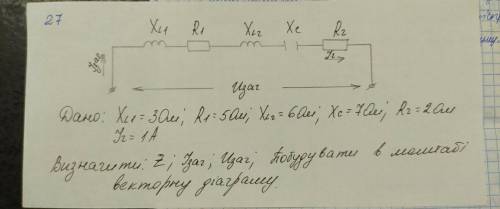 27
X_L1 R1 X_L2 X_C R2
I_заг I_2
U_заг
Дано: X_L1 = 3 Ом; R1 = 5 Ом; X_L2 = 6 Ом; X_C = 7 Ом; R2 = 2 Ом
I_2 = 1 А
Визначити: Z; I_заг; U_заг; Побудувати в масштабі
векторну діаграму.